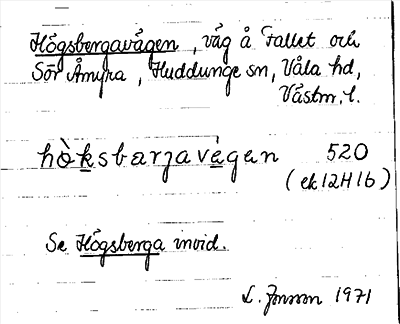 Högsbergavägen, väg å Fallet och
Sör Åmyra, Huddunge sn, Våla hd,
Västm. l.
hòksbærjavegen 520
(ek 12H 1b)
Se Högsberga invid.
L. Jonsson 1971